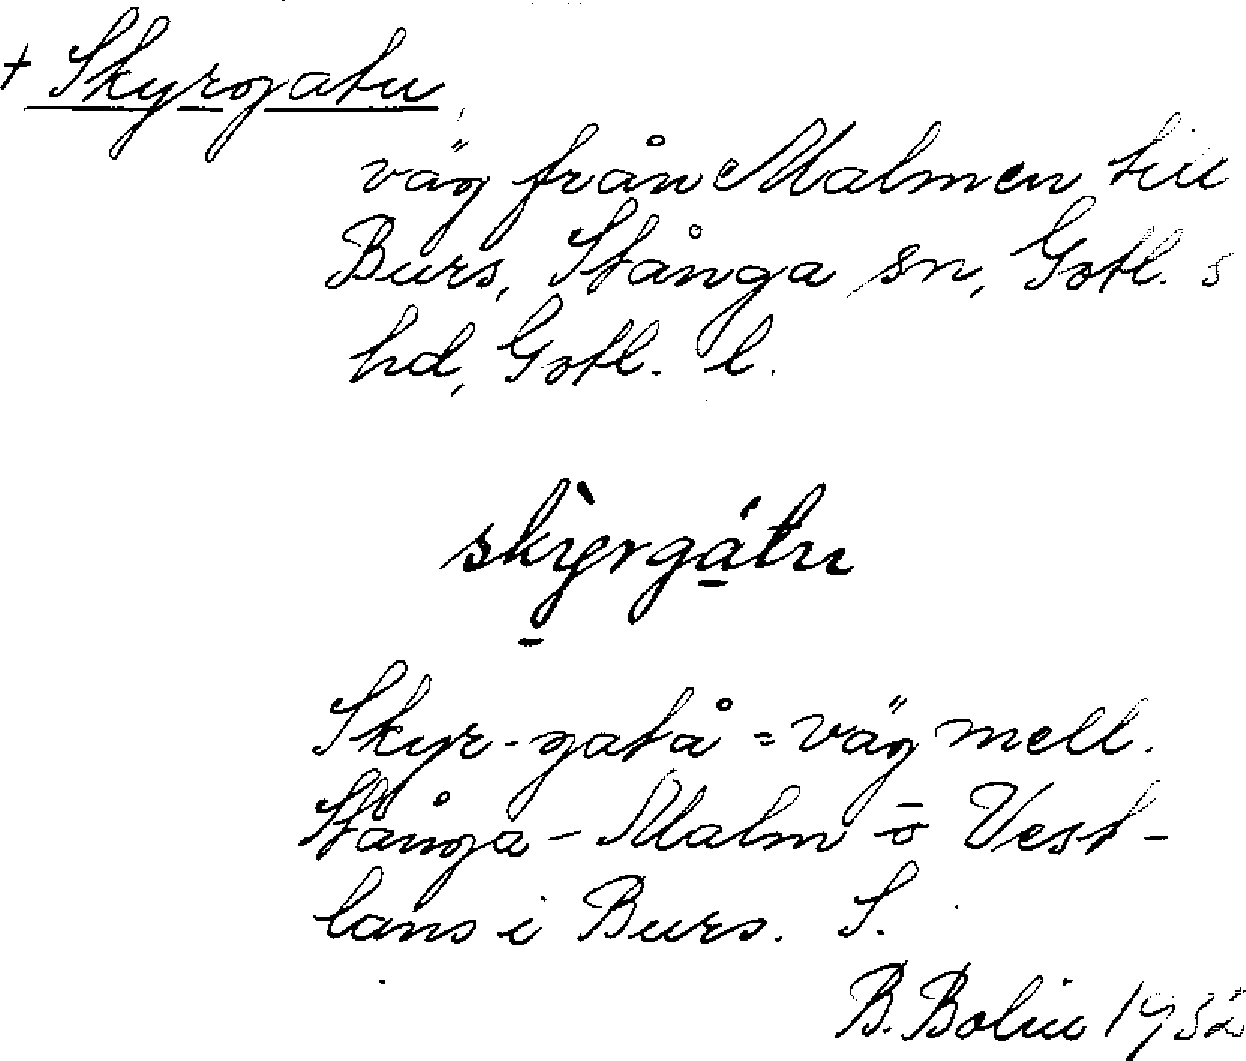 + Skyrgatu
väg från Malmen till
Burs, Stånga sn, Gotl. s
hd, Gotl. l.
skỳrgátu
Skyr-gatå = väg mell.
Stånga - Malm o Vest-
lans i Burs. S.
B. Bolin 1932